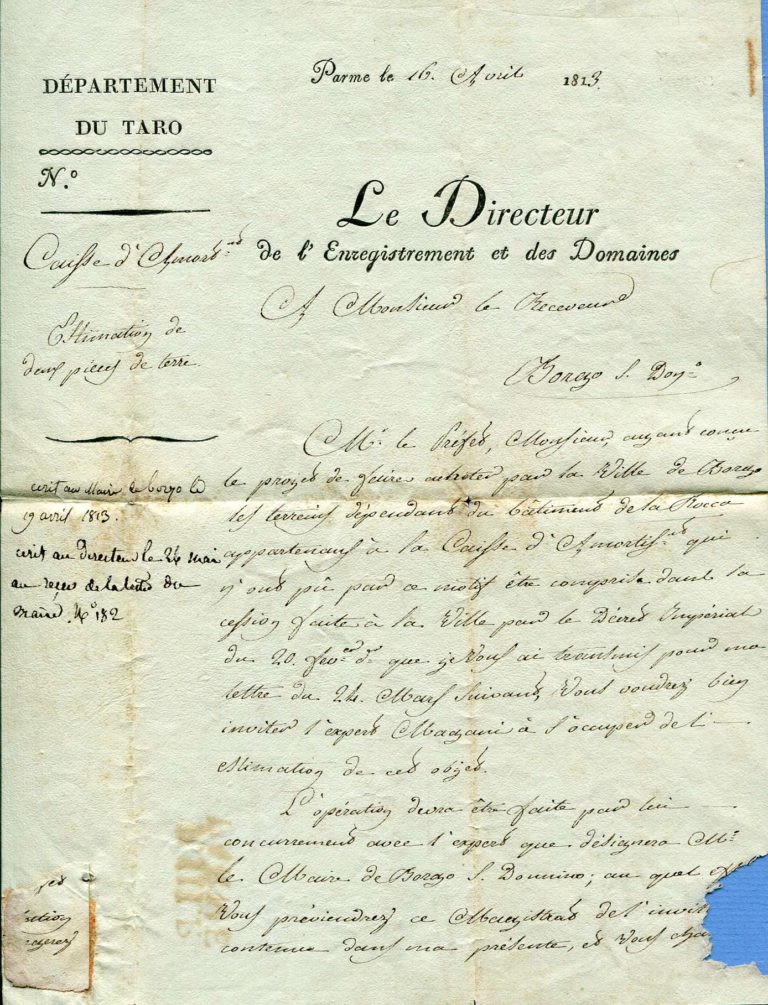 DÉPARTEMENT
DU TARO
N.º
Parme le 16. Avril 1813.
Le Directeur
de l'Enregistrement et des Domaines
Caisse d'Amort.
Estimation de
deux pieces de terre.
A Monsieur le Receveur
Borgo S. Don.º
ecrit au Maire de borgo le
19 avril 1813.
ecrit au directeur le 24 mai
au reçu de la lettre du
maire. Nº 182
Mr. le Préfet, Monsieur, ayant conçu
le projet de faire acheter par la Ville de Borgo
les terreins dépendans du bâtiment de la Rocca
appartenans à la Caisse d'Amortis. qui
n'ont pû par ce motif être compris dans la
cession faite à la Ville par le Décret Impérial
du 20. fev. dr. que je vous ai transmis par ma
lettre du 24. Mars suivant, vous voudrez bien
inviter l'expert à s'occuper de l'
estimation de ces objets.
L'opération devra être faite par lui
concurremment avec l'expert que désignera Mr.
le Maire de Borgo S. Donnino; au quel
vous préviendrez ce Magistrat de l'invit
contenue dans ma présente, et vous